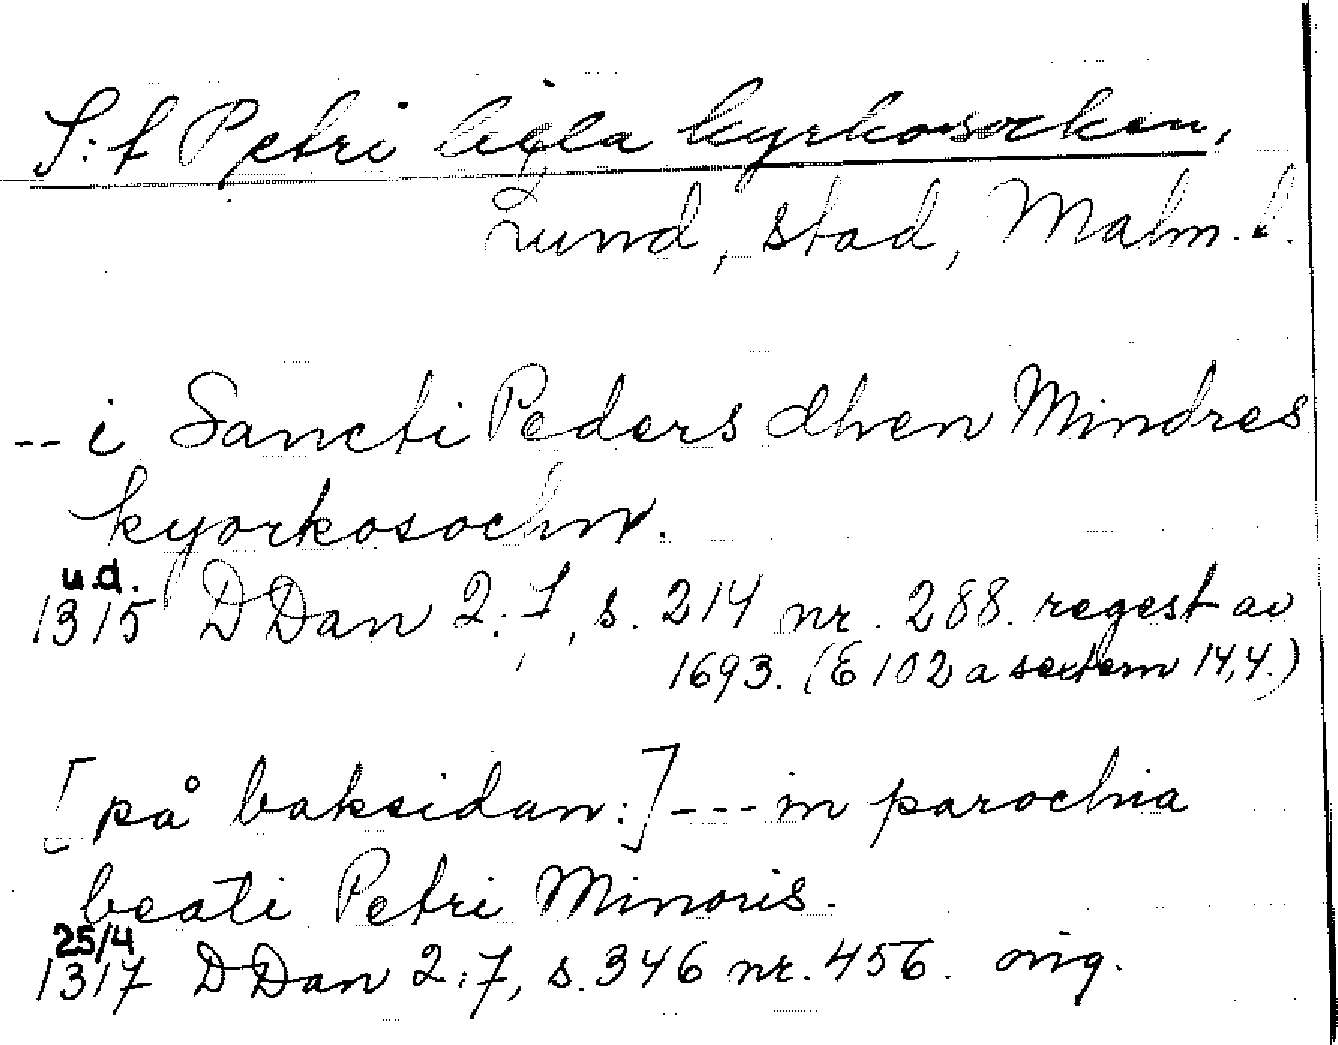 S:t Petri lilla kyrkosocken,
Lund, stad, Malm. l.
-- i Sancti Peders dhen Mindres
kyorkosochn.
u.d.
1315 DDan 2:7, s. 214 nr. 288. regest av
1693. (E 102 a sextern 14,4.)
[på baksidan:] --- in parochia
beati Petri Minoris.
25/4
1317 DDan 2:7, s. 346 nr. 456. orig.